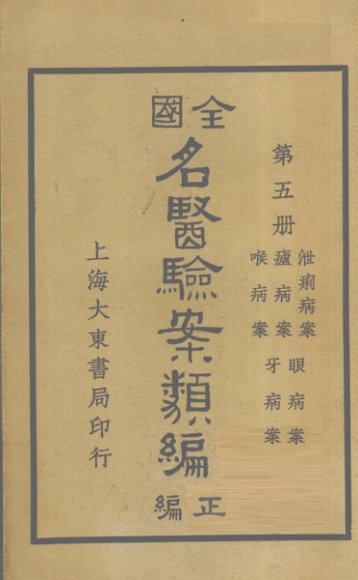 第五册
泄痢病案
瘧病案
喉病案
眼病案
牙病案
全國
名醫驗案類編
正編
上海大東書局印行